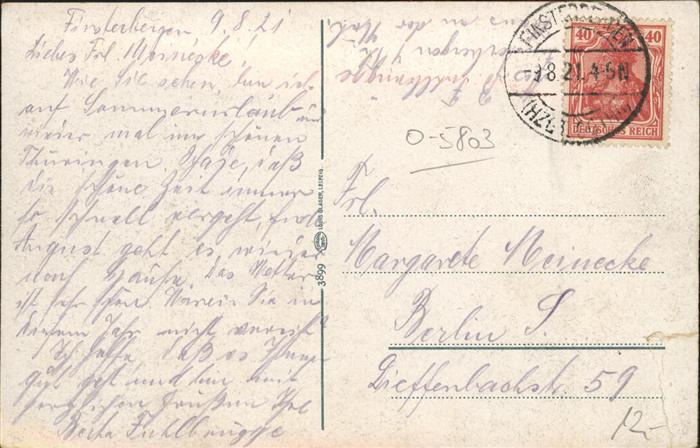 Finsterbergen 9.8.21
Liebes Frl. Meinecke!
Wie Sie sehen, bin ich
auf Sommerurlaub und
wieder mal im schönen
Thüringen. Schade, daß
die schöne Zeit immer
so schnell vergeht, Ende
August geht es wieder
nach Hause. Das Wetter
ist sehr schön. Waren Sie in
diesem Jahr nicht verreist?
Ich hoffe, daß es Ihnen
gut geht und bin mit
herzlichen Grüßen Ihre
Berta Fuhlbrügge
3899 LOUIS GLASER, LEIPZIG.
FINSTERBERGEN
-9.8.21.4-5N
(HZGT.
40 40
DEUTSCHES REICH
0-5803
Frl.
Margarete Meinecke
Berlin S.
Dieffenbachstr. 59
12-